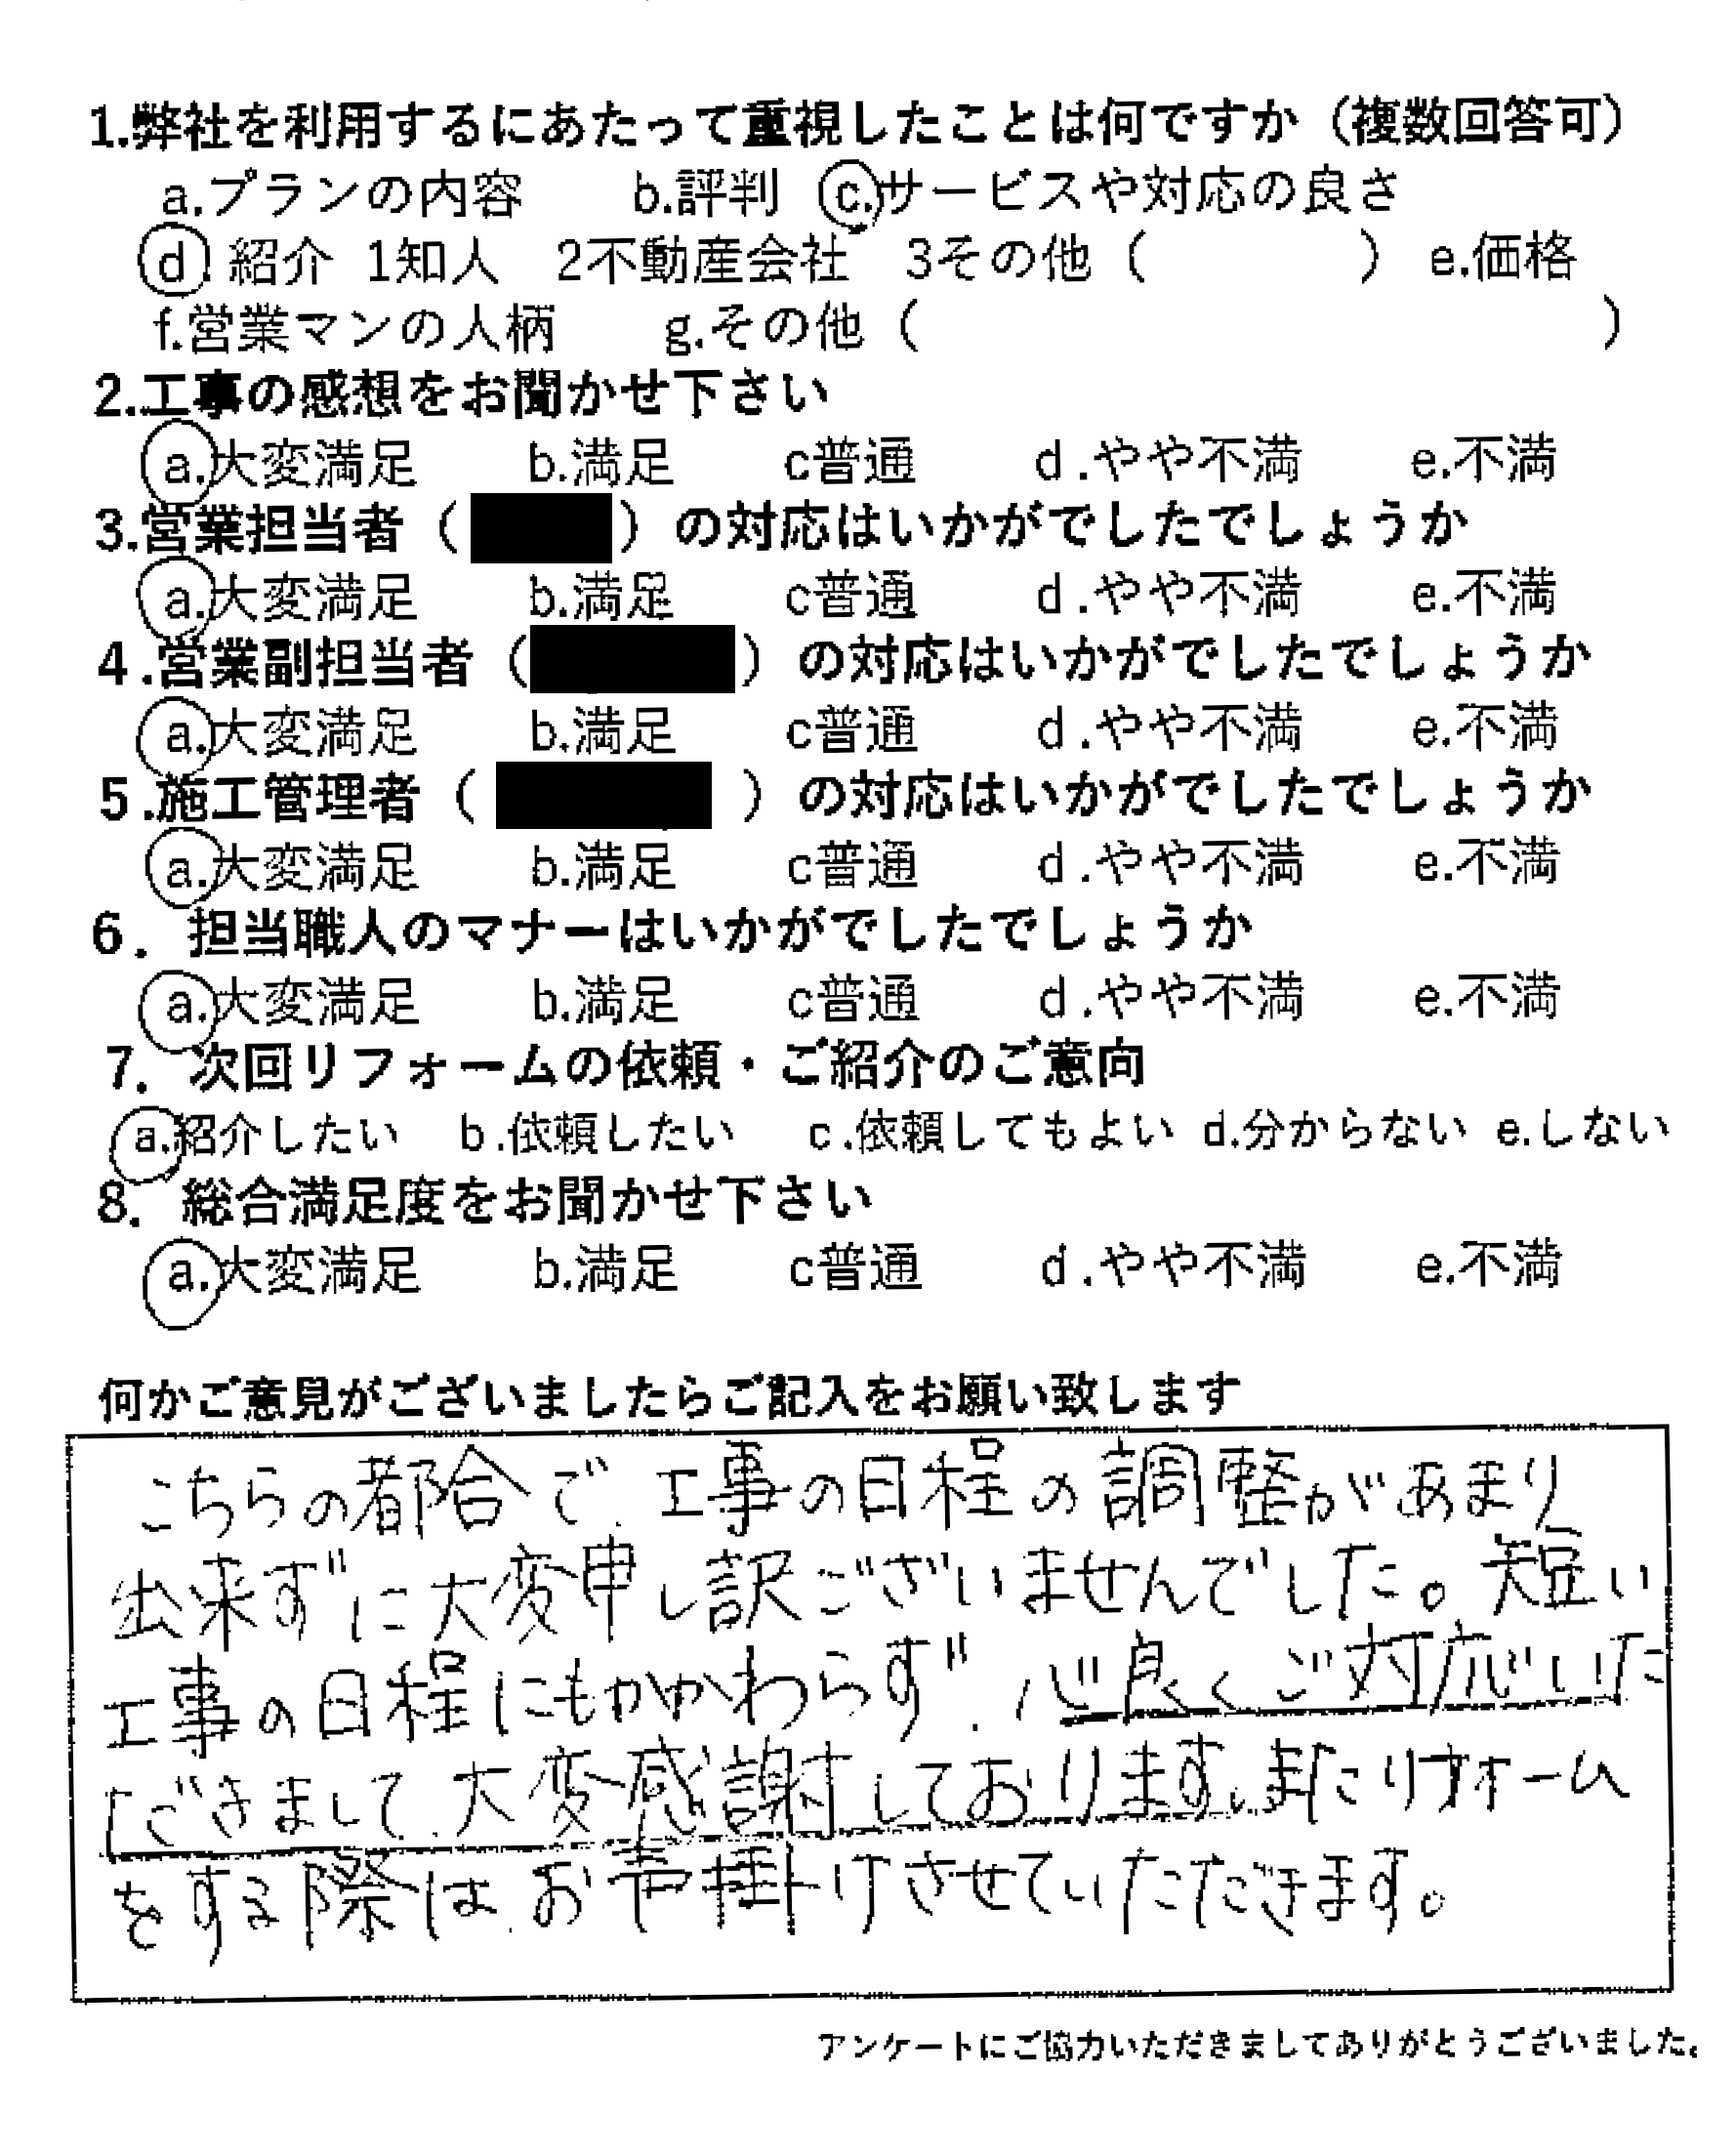 1.弊社を利用するにあたって重視したことは何ですか（複数回答可）
a.プランの内容 b.評判 c.サービスや対応の良さ
d. 紹介 1知人 2不動産会社 3その他（ ） e.価格
f.営業マンの人柄 g.その他（ ）
2.工事の感想をお聞かせ下さい
a.大変満足 b.満足 c普通 d.やや不満 e.不満
3.営業担当者（ ）の対応はいかがでしたでしょうか
a.大変満足 b.満足 c普通 d.やや不満 e.不満
4.営業副担当者（ ）の対応はいかがでしたでしょうか
a.大変満足 b.満足 c普通 d.やや不満 e.不満
5.施工管理者（ ）の対応はいかがでしたでしょうか
a.大変満足 b.満足 c普通 d.やや不満 e.不満
6. 担当職人のマナーはいかがでしたでしょうか
a.大変満足 b.満足 c普通 d.やや不満 e.不満
7. 次回リフォームの依頼・ご紹介のご意向
a.紹介したい b.依頼したい c.依頼してもよい d.分からない e.しない
8. 総合満足度をお聞かせ下さい
a.大変満足 b.満足 c普通 d.やや不満 e.不満
何かご意見がございましたらご記入をお願い致します
こちらの都合で、工事の日程の調整があまり
出来ずに大変申し訳ございませんでした。短い
工事の日程にもかかわらず、心良くご対応いた
だきまして、大変感謝しております。またリフォーム
をする際は、お声掛けさせていただきます。
アンケートにご協力いただきましてありがとうございました。